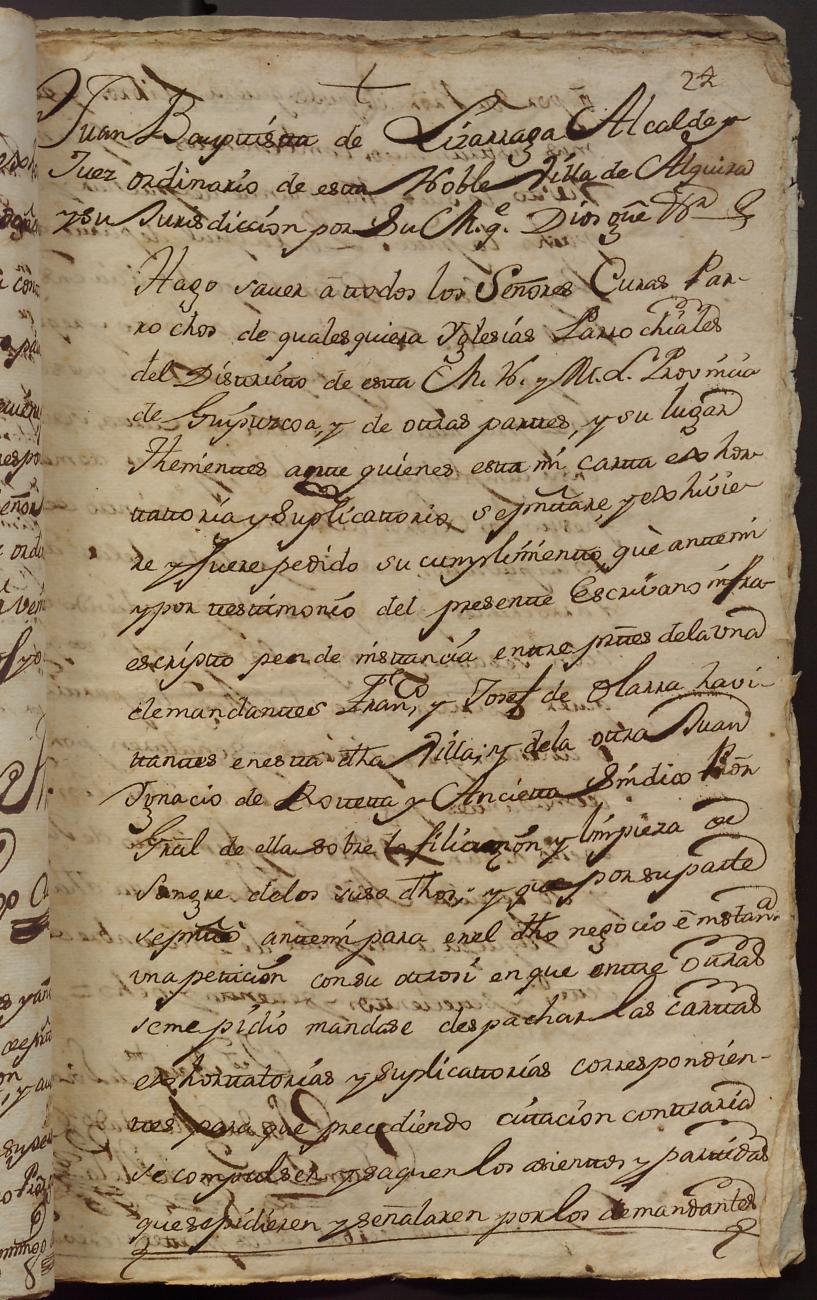 24
Juan Bauptista de Lizarraga Alcalde y
Juez ordinario de esta Noble Villa de Alquiza
y su Jurisdiccion por Su M. q.e Dios gûe
Hago saver â ttodos los Señores Curas Par-
rochos de qualesquiera Yglesias Parrochiales
del Distrito de esta M. N. y M. L. Provincia
de Guipuzcoa, y de otras partes, y su lugar
Thenientes a quienes esta mi carta exhor-
tattoria y Suplicattoria, se pntare y exhivie-
re y fuere pedido su cumplimiento, què antemi
y por testimonio del presente Escrivano infra-
escripto pende instancia entre partes dela una
demandantes Fran.co y Josef de Olarra havi-
tantes en esta dha Villa, y dela otra Juan
Ignacio de Rotetta y Ancietta Sindico Prôr
Grâl de ella sobre la filiazon y limpieza de
Sangre delos suso dhos; y que por su parte
se pntó antemi para en el dho negocio è instan.a
una peticion con su otrosi en que entre otras
se me pidio mandase despachar las cartas
exhortatorias y suplicattorias correspondien-
tes para que precediendo citacion contraria
se compulsen y saquen los asientos y partidas
que se pidieren y señalaren por los demandantes